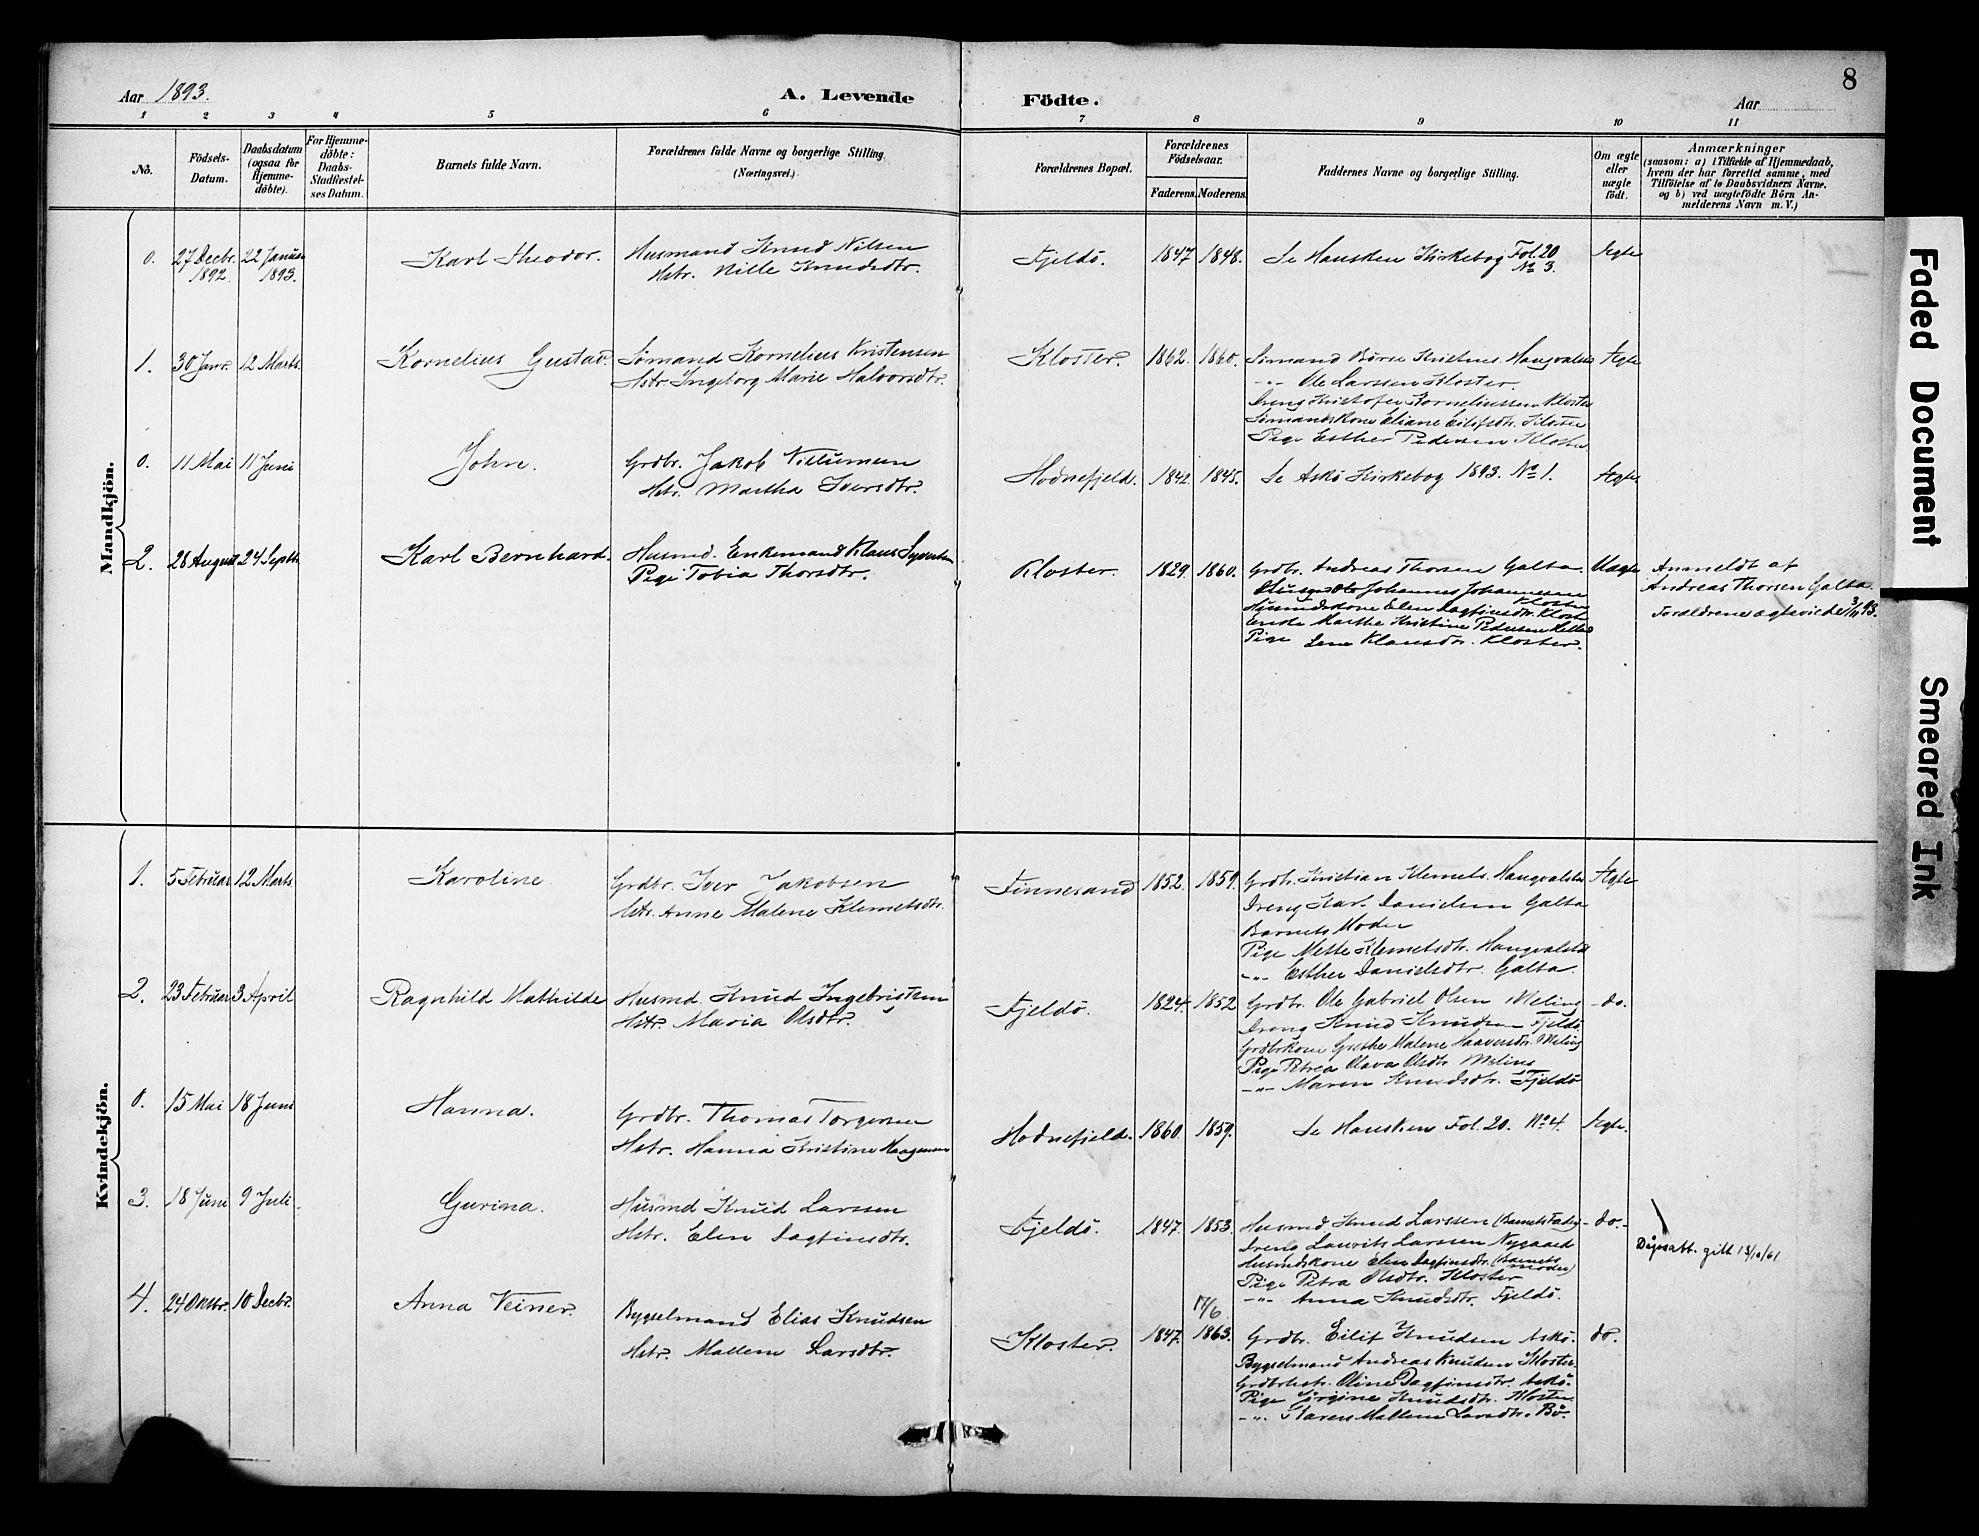 8
Aar 1893
A. Levende Födte.
Aar
1 2 3 4 5 6 7 8 9 10 11
No.
Födsels-Datum.
Daabsdatum (ogsaa for Hjemme-döbte).
For Hjemme-döbte: Daabs-Stadfæstel-ses Datum.
Barnets fulde Navn.
Forældrenes fulde Navne og borgerlige Stilling (Næringsvei.)
Forældrenes Bopæl.
Forældrenes Födselsaar.
Faderens. Moderens.
Faddernes Navne og borgerlige Stilling.
Om ægte eller uægte født.
Anmærkninger
(saasom: a) i Tilfælde af Hjemmedaab,
hvem der har forrettet samme, med
Tilföielse af to Daabsvidners Navne,
og b) ved uægtefödte Börn An-
melderens Navn m. V.)
Mandkjön.
0. 27 Decbr. 1892. 22 Januar 1893. Karl Theodor.
Husmand Knud Nilsen
Hstr. Nille Knudsdtr.
Fjeldö. 1847 1848. Se Hausken Kirkebog Fol. 20 No 3. Ægte
1. 30 Janr. 12 Marts. Kornelius Gustav.
Sømand Kornelius Kristensen
Hstr Ingeborg Marie Halvorsdtr.
Kloster. 1862. 1860. Ægte
Sømand Börre Kristens. Haugvalsta
-"- Ole Larssen Kloster.
Dreng Kristofer Korneliussen Kloster
Sømandskone Eliane Eilifsdtr. Kloster
Pige Esther Pedersen Kloster
0. 11 Mai 11 Juni John.
Grdbr. Jakob Villumsen
Hstr. Martha Iversdtr.
Hodnefjeld. 1842. 1845. Se Askö Kirkebog 1893. No 1. Ægte
2. 28 August 24 Septbr. Karl Bernhard.
Husmd. Enkemand Klaus Syvertsen
Pige Tobia Thorsdtr.
Kloster. 1829. 1860. Uægte
Grdbr. Andreas Thorsen Galta.
Johannes Johannesen Kloster
Husmdskone Elen Dagfinsdtr. Kloster
Martha Kristine Pedersen
Pige Lene Klausdtr. Kloster.
Anmeldt af
Andreas Thorsen Galta.
Forældrene ægteviede 3/11 93.
Kvindekjön.
1. 5 Februar 12 Marts Karoline
Grdbr. Iver Jakobsen
Hstr. Anne Malene Klemetsdtr.
Finnesand 1852. 1859. Ægte
Grdbr. Kristian Klemets. Haugvalsta
Dreng Karl Danielsen Galta
Barnets Moder
Pige Mette Klemetsdtr. Haugvalsta
-"- Esther Danielsdtr. Galta.
2. 23 Februar 3 April Ragnhild Mathilde
Husmd. Knud Ingebrigtsen
Hstr. Maria Olsdtr.
Fjeldö. 1824. 1852 -do.
Grdbr. Ole Gabriel Olsen Meling
Dreng Knud Knudsen Fjeldö.
Grdbrkone Grethe Malene Haaversdtr. Meling
Pige Petrea Olava Olsdtr. Meling
-"- Maren Knudsdtr. Fjeldö
0. 15 Mai 18 Juni Hanna.
Grdbr. Thomas Torgersen
Hstr. Hanna Kristine Haagensen
Hodnefjeld. 1860. 1859. Se Hausken Fol. 20. No 4. Ægte.
3. 18 Juni 9 Juli. Gurina.
Husmd Knud Larssen
Hstr. Elen Dagfinsdtr.
Fjeldö. 1847. 1853. -do.-
Husmd. Knud Larssen (Barnets Fader)
Dreng Laurits Larssen Nygaard
Husmdskone Elen Dagfinsdtr. (Barnets Moder)
Pige Petra Olsdtr. Kloster
-"- Anna Knudsdtr. Fjeldö.
Dåpsatt. gitt 13/10/61
4. 24 Oktbr. 10 Decbr. Anna Veiner.
Bygselmand Elias Knudsen
Hstr. Mallene Larsdtr.
Kloster. 1847. 17/6 1863. do.
Grdbr. Eilif Knudsen Askö.
Bygselmand Andreas Knudsen Kloster.
Grdbrhstr. Oline Dagfinsdtr. Askö.
Pige Jörgine Knudsdtr. Kloster
-"- Karen Mallene Larsdtr. Bö.
Faded Document
Smeared Ink